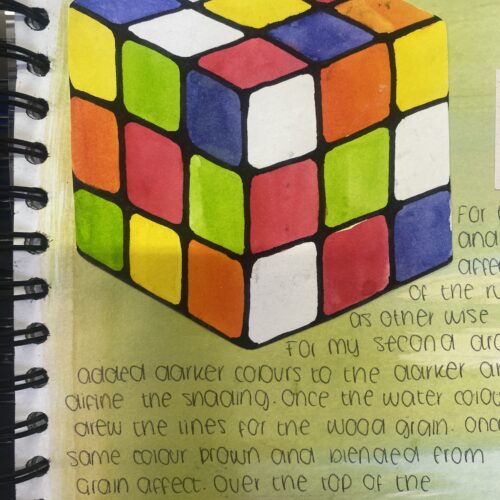 For
and
affe
of the ru
as other wise
For my second dra
added darker colours to the darker ar
difine the shading. Once the water colou
drew the lines for the wood grain. Onc
same colour brown and blended from
grain affect. Over the top of the